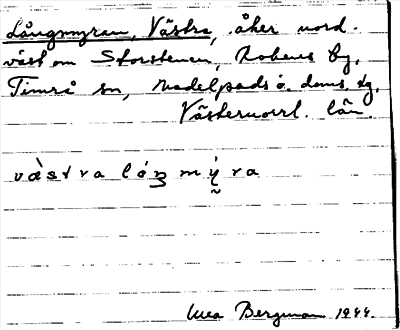 Långmyran, Västra, åker nord-
väst om Storstenen, Hobens by,
Timrå sn, Medelpads ö. doms. dg,
Västernorrl. län.
vàstra láŋmý̰ra
Moa Bergman 1944.